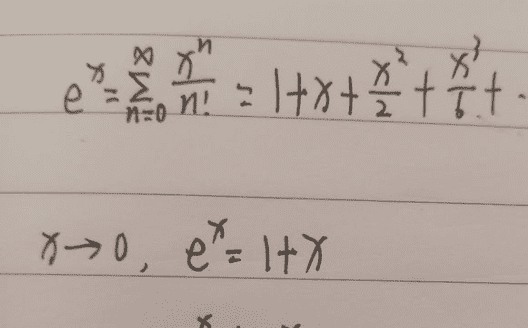 e^x = \sum_{n=0}^{\infty} \frac{x^n}{n!} = 1+x+\frac{x^2}{2}+\frac{x^3}{6}+·
x→0, e^x = 1+x